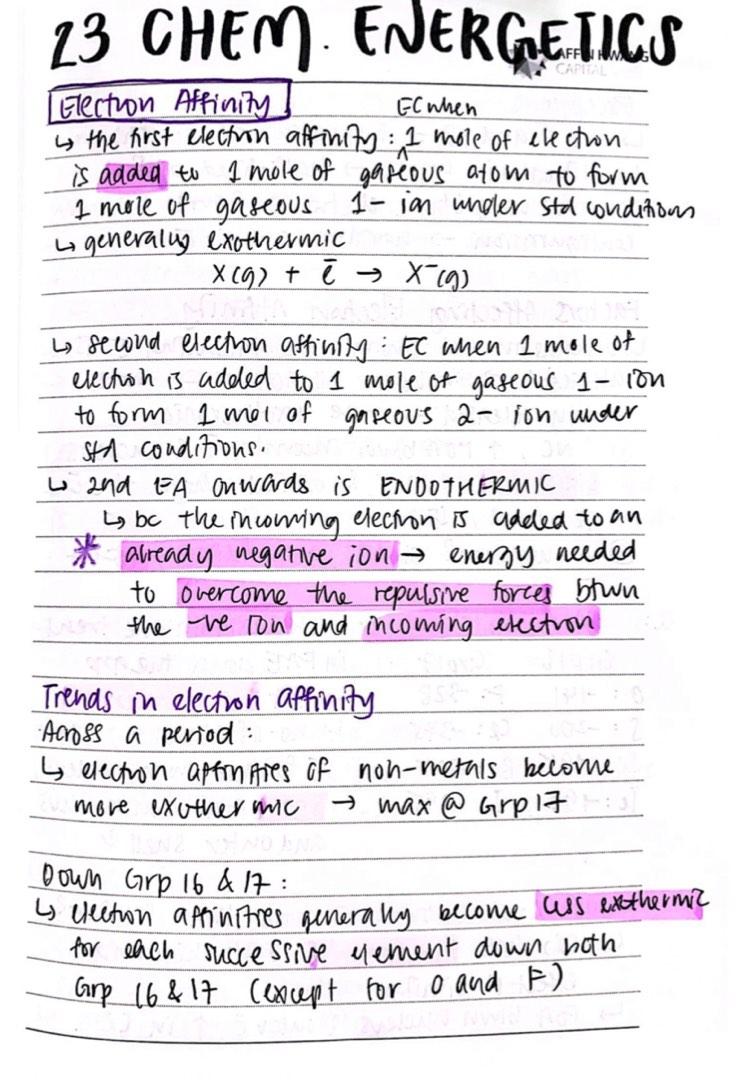 23 CHEM. ENERGETICS
AFFIN HWANG
CAPITAL
Electron Affinity
EC when
↳ the first electron affinity : ^ 1 mole of electron
is added to 1 mole of gaseous atom to form
1 mole of gaseous 1- ion under std conditions
↳ generally exothermic
X(g) + ē → X⁻(g)
↳ second electron affinity : EC when 1 mole of
electron is added to 1 mole of gaseous 1- ion
to form 1 mol of gaseous 2- ion under
std conditions.
↳ 2nd EA onwards is ENDOTHERMIC
↳ bc the incoming electron is added to an
* already negative ion → energy needed
to overcome the repulsive forces btwn
the -ve ion and incoming electron
Trends in electron affinity
Across a period :
↳ electron affinities of non-metals become
more exothermic → max @ Grp 17
Down Grp 16 & 17 :
↳ electron affinities generally become less exothermic
for each successive element down both
Grp 16 & 17 (except for O and F)